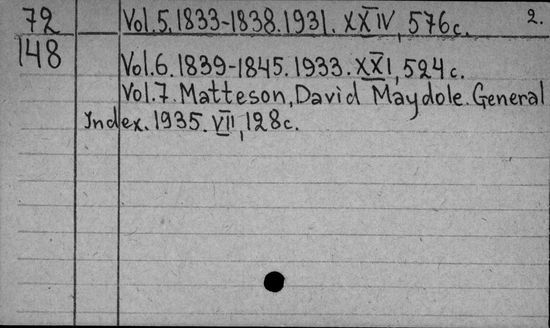 72 Vol.5.1833-1838.1931. XXIV, 576c. 2.
148 Vol.6.1839-1845.1933. XXI, 524c.
Vol.7. Matteson, David Maydole. General
Index. 1935. VII, 128c.